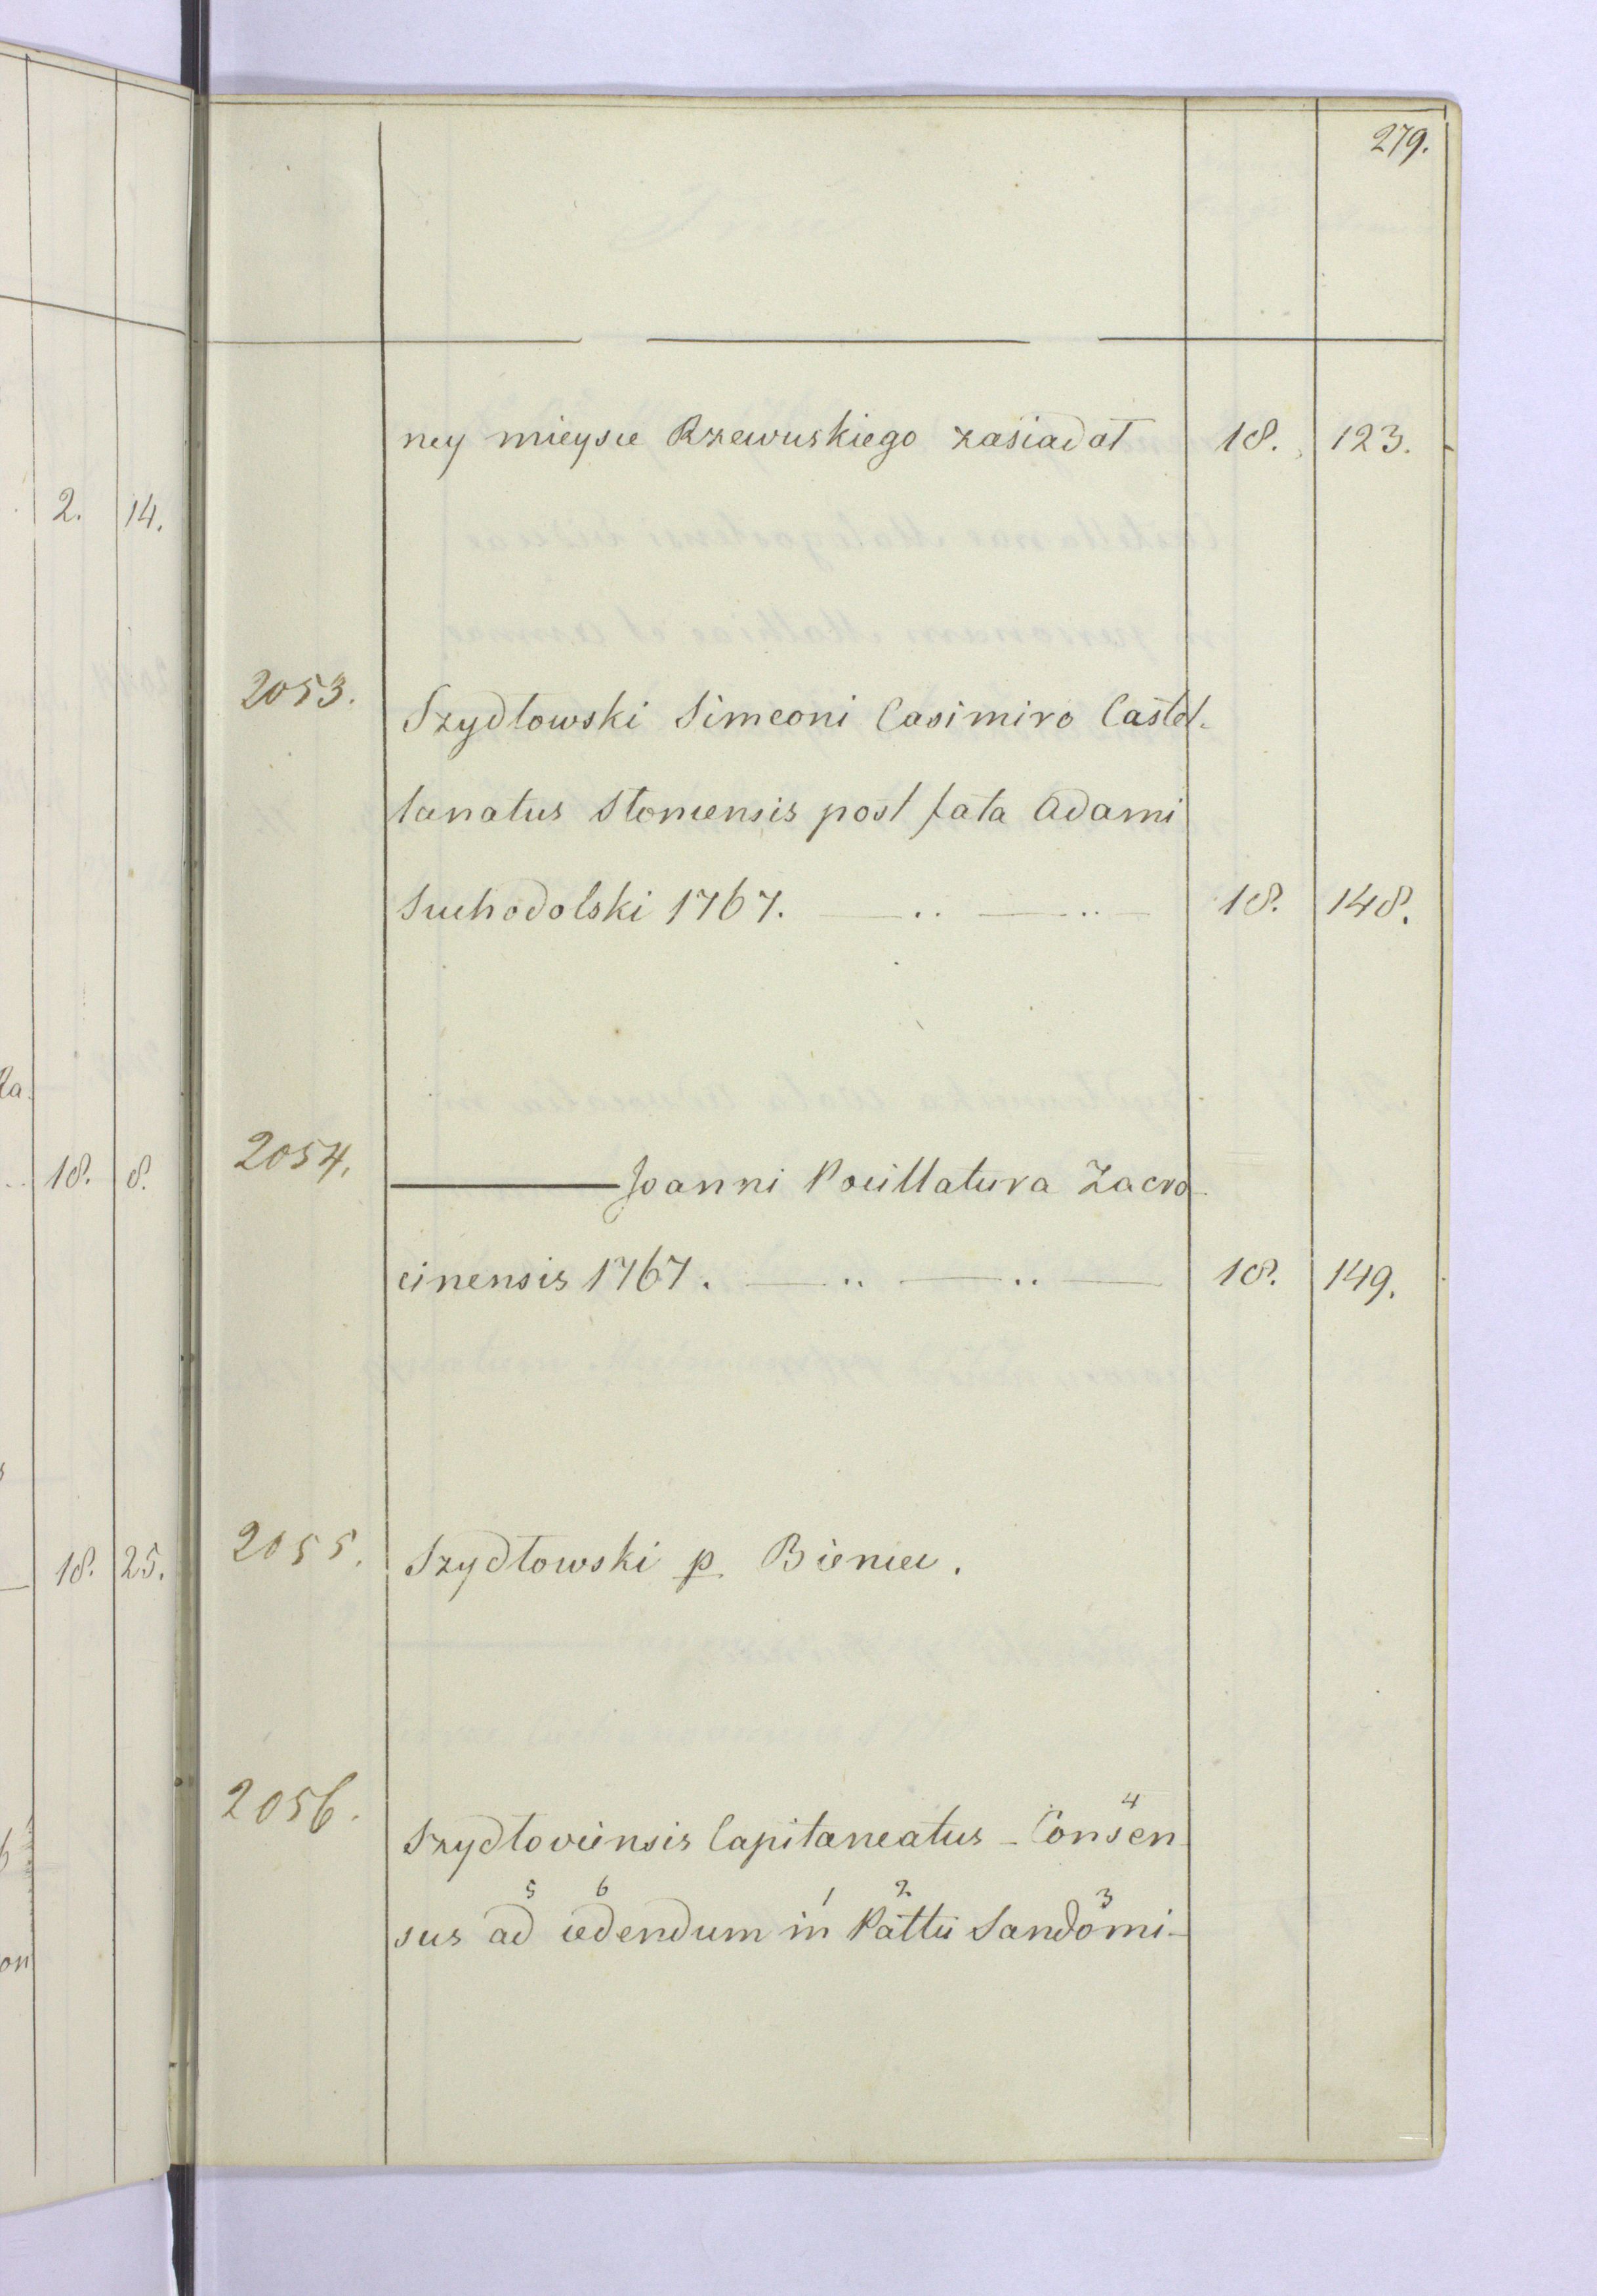 279.
ney mieysce Rzewuskiego zasiadał 18. 123.
2053. Szydłowski Simeoni Casimiro Castel-
lanatus Słonensis post fata Adami
Suchodolski 1767. 18. 148.
2054. ——— Joanni Pocillatura Zacro-
cinensis 1767. 18. 149.
2055. Szydłowski p. Bieniec.
2056. Szydłoviensis Capitaneatus - Consen-
sus ad cedendum in Pattii Sandomi-
2. 14.
ka.
18. 8.
18. 25.
on